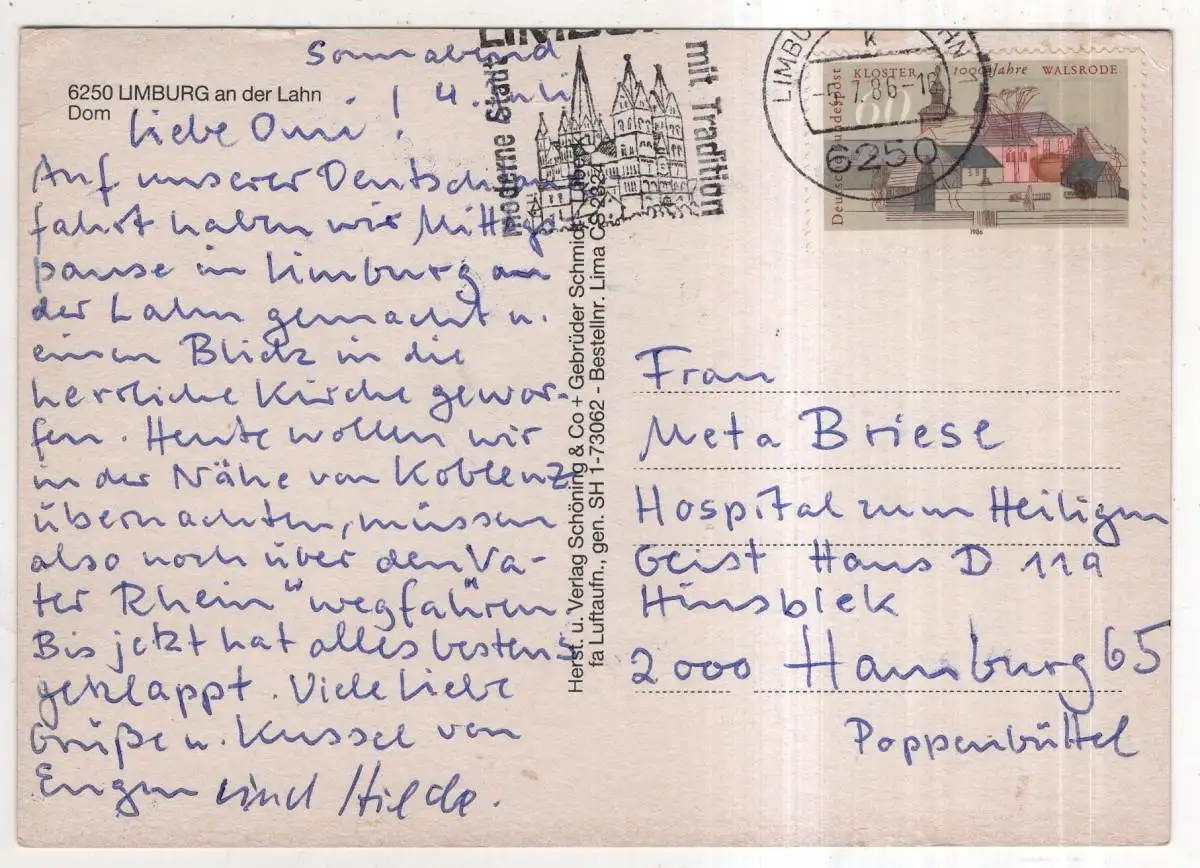 6250 LIMBURG an der Lahn
Dom
Sonnabend
4. Juli
Liebe Omi!
Auf unserer Deutschland
fahrt haben wir Mittags
pause in Limburg an
der Lahn gemacht u.
einen Blick in die
herrliche Kirche gewor-
fen. Heute wollen wir
in der Nähe von Koblenz
übernachten, müssen
also noch über den Va-
ter Rhein "wegfahren
Bis jetzt hat alles bestens
geklappt. Viele liebe
Grüße u. Küssel von
Eugen und Hilde.
LIMBURG
moderne Stadt
mit Tradition
LIMBURG LAHN
k
-5.7.86-18
6250
Deutsche Bundespost
KLOSTER 1000 Jahre WALSRODE
60
1986
Herst. u. Verlag Schöning & Co + Gebrüder Schmidt, Lübeck
fa Luftaufn., gen. SH 1-73062 - Bestellnr. Lima CS
Frau
Meta Briese
Hospital zum Heiligen
Geist Haus D 119
Hinsblek
2000 Hamburg 65
Poppenbüttel